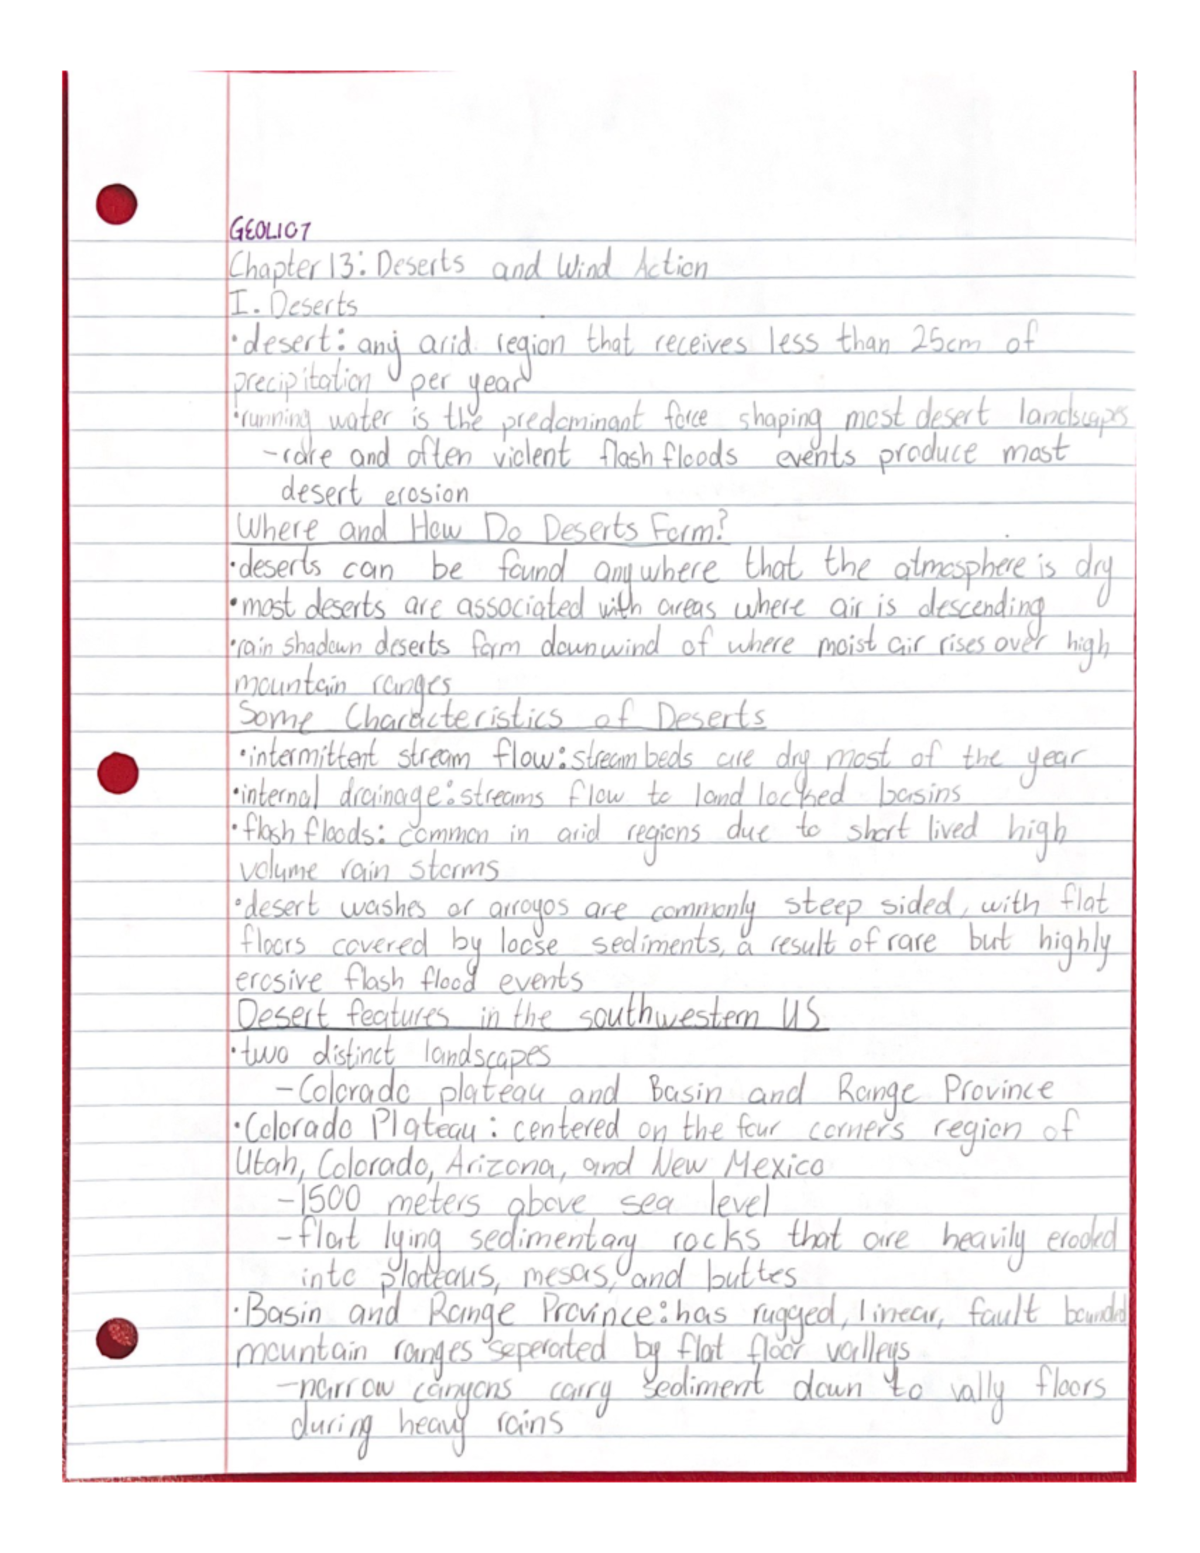 GEOL107
Chapter 13: Deserts and Wind Action
I. Deserts
•desert: any arid region that receives less than 25cm of
precipitation per year
•running water is the predominant force shaping most desert landscapes
-rare and often violent flash floods events produce most
desert erosion
Where and How Do Deserts Form?
•deserts can be found anywhere that the atmosphere is dry
•most deserts are associated with areas where air is descending
•rain shadown deserts form downwind of where moist air rises over high
mountain ranges
Some Characteristics of Deserts
•intermittent stream flow: streambeds are dry most of the year
•internal drainage: streams flow to land locked basins
•flash floods: common in arid regions due to short lived high
volume rain storms
•desert washes or arroyos are commonly steep sided, with flat
floors covered by loose sediments, a result of rare but highly
erosive flash flood events
Desert features in the southwestern US
•two distinct landscapes
-Colorado plateau and Basin and Range Province
•Colorado Plateau: centered on the four corners region of
Utah, Colorado, Arizona, and New Mexico
-1500 meters above sea level
-flat lying sedimentary rocks that are heavily erooded
into platteaus, mesas, and buttes
•Basin and Range Province: has rugged, linear, fault bounded
mountain ranges seperated by flat floor valleys
-narrow canyons carry sediment down to vally floors
during heavy rains